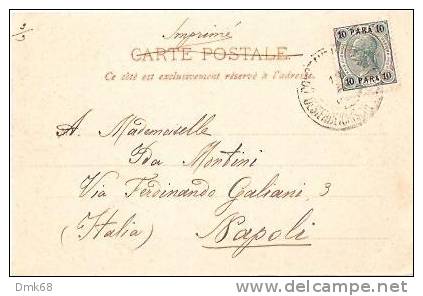 Imprimé
CARTE POSTALE.
Ce côté est exclusivement réservé à l'adresse.
10 PARA 10
10 PARA 10
A. Mademoiselle
Ida Montini
Via Ferdinando Galiani, 3
(Italia) Napoli
Dmk68
www.delcampe.net